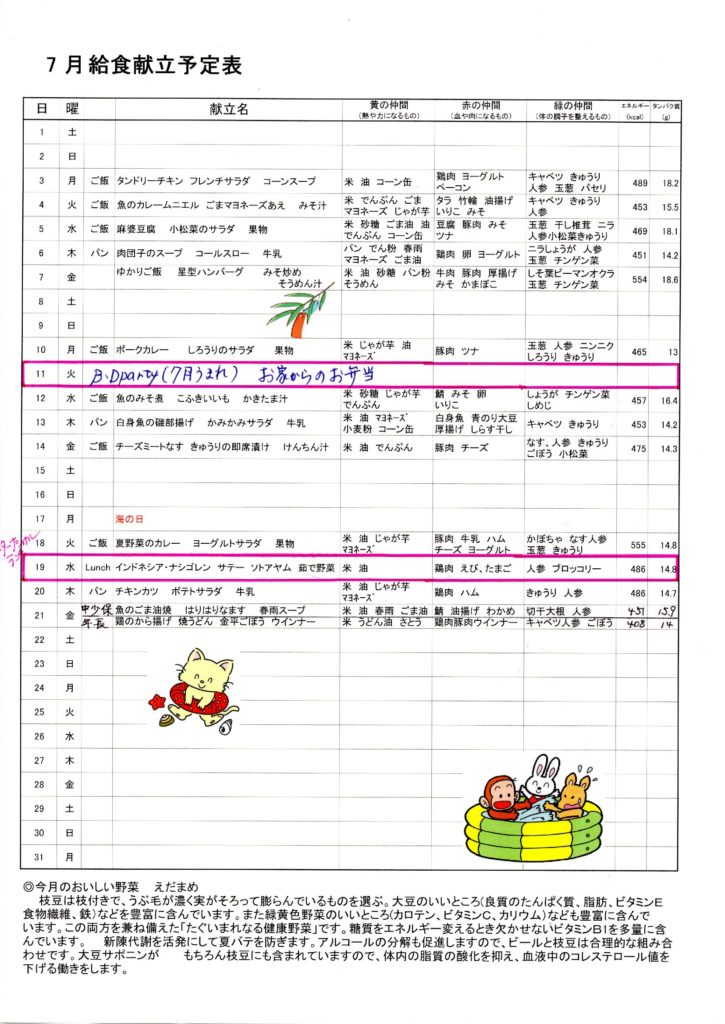 7月給食献立予定表
日 曜 献立名 黄の仲間 (熱や力になるもの) 赤の仲間 (血や肉になるもの) 緑の仲間 (体の調子を整えるもの) エネルギー (kcal) タンパク質 (g)
1 土
2 日
3 月 ご飯 タンドリーチキン フレンチサラダ コーンスープ 米 油 コーン缶 鶏肉 ヨーグルト ベーコン キャベツ きゅうり 人参 玉葱 パセリ 489 18.2
4 火 ご飯 魚のカレームニエル ごまマヨネーズあえ みそ汁 米 でんぷん ごま マヨネーズ じゃが芋 タラ 竹輪 油揚げ いりこ みそ キャベツ きゅうり 人参 453 15.5
5 水 ご飯 麻婆豆腐 小松菜のサラダ 果物 米 砂糖 ごま油 油 でんぷん コーン缶 豆腐 豚肉 みそ ツナ 玉葱 干し椎茸 ニラ 人参小松菜きゅうり 469 18.1
6 木 パン 肉団子のスープ コールスロー 牛乳 パン でん粉 春雨 マヨネーズ ごま油 鶏肉 卵 ヨーグルト ニラしょうが 人参 玉葱 チンゲン菜 451 14.2
7 金 ゆかりご飯 星型ハンバーグ みそ炒め そうめん汁 米 油 砂糖 パン粉 そうめん 牛肉 豚肉 厚揚げ みそ かまぼこ しそ葉ピーマンオクラ 玉葱 チンゲン菜 554 18.6
8 土
9 日
10 月 ご飯 ポークカレー しろうりのサラダ 果物 米 じゃが芋 油 マヨネーズ 豚肉 ツナ 玉葱 人参 ニンニク しろうり きゅうり 465 13
11 火 B.Dparty(7月うまれ) お家からのお弁当
12 水 ご飯 魚のみそ煮 こふきいいも かきたま汁 米 砂糖 じゃが芋 でんぷん 鯖 みそ 卵 いりこ しょうが チンゲン菜 しめじ 457 16.4
13 木 パン 白身魚の磯部揚げ かみかみサラダ 牛乳 米 油 マヨネーズ 小麦粉 コーン缶 白身魚 青のり大豆 厚揚げ しらす干し キャベツ きゅうり 453 14.2
14 金 ご飯 チーズミートなす きゅうりの即席漬け けんちん汁 米 油 でんぷん 豚肉 チーズ なす、人参 きゅうり ごぼう 小松菜 475 14.3
15 土
16 日
17 月 海の日
18 火 ご飯 夏野菜のカレー ヨーグルトサラダ 果物 米 油 じゃが芋 マヨネーズ 豚肉 牛乳 ハム チーズ ヨーグルト かぼちゃ なす人参 玉葱 きゅうり 555 14.8
19 水 Lunch インドネシア・ナシゴレン サテー ソトアヤム 茹で野菜 米 油 鶏肉 えび、たまご 人参 ブロッコリー 486 14.8
20 木 パン チキンカツ ポテトサラダ 牛乳 米 油 じゃが芋 マヨネーズ 鶏肉 ハム きゅうり 人参 486 14.7
21 金 中少保 魚のごま油焼 はりはりなます 春雨スープ 米 油 春雨 ごま油 鯖 油揚げ わかめ 切干大根 人参 451 15.9
年長 鶏のから揚げ 焼うどん 金平ごぼう ウインナー 米 うどん油 さとう 鶏肉豚肉ウインナー キャベツ人参 ごぼう 408 14
22 土
23 日
24 月
25 火
26 水
27 木
28 金
29 土
30 日
31 月
◎今月のおいしい野菜 えだまめ
枝豆は枝付きで、うぶ毛が濃く実がそろって膨らんでいるものを選ぶ。大豆のいいところ(良質のたんぱく質、脂肪、ビタミンE
食物繊維、鉄)などを豊富に含んでいます。また緑黄色野菜のいいところ(カロテン、ビタミンC、カリウム)なども豊富に含んで
います。この両方を兼ね備えた「たぐいまれなる健康野菜」です。糖質をエネルギー変えるとき欠かせないビタミンB1を多量に含
んでいます。 新陳代謝を活発にして夏バテを防ぎます。アルコールの分解も促進しますので、ビールと枝豆は合理的な組み合
わせです。大豆サポニンが もちろん枝豆にも含まれていますので、体内の脂質の酸化を抑え、血液中のコレステロール値を
下げる働きをします。